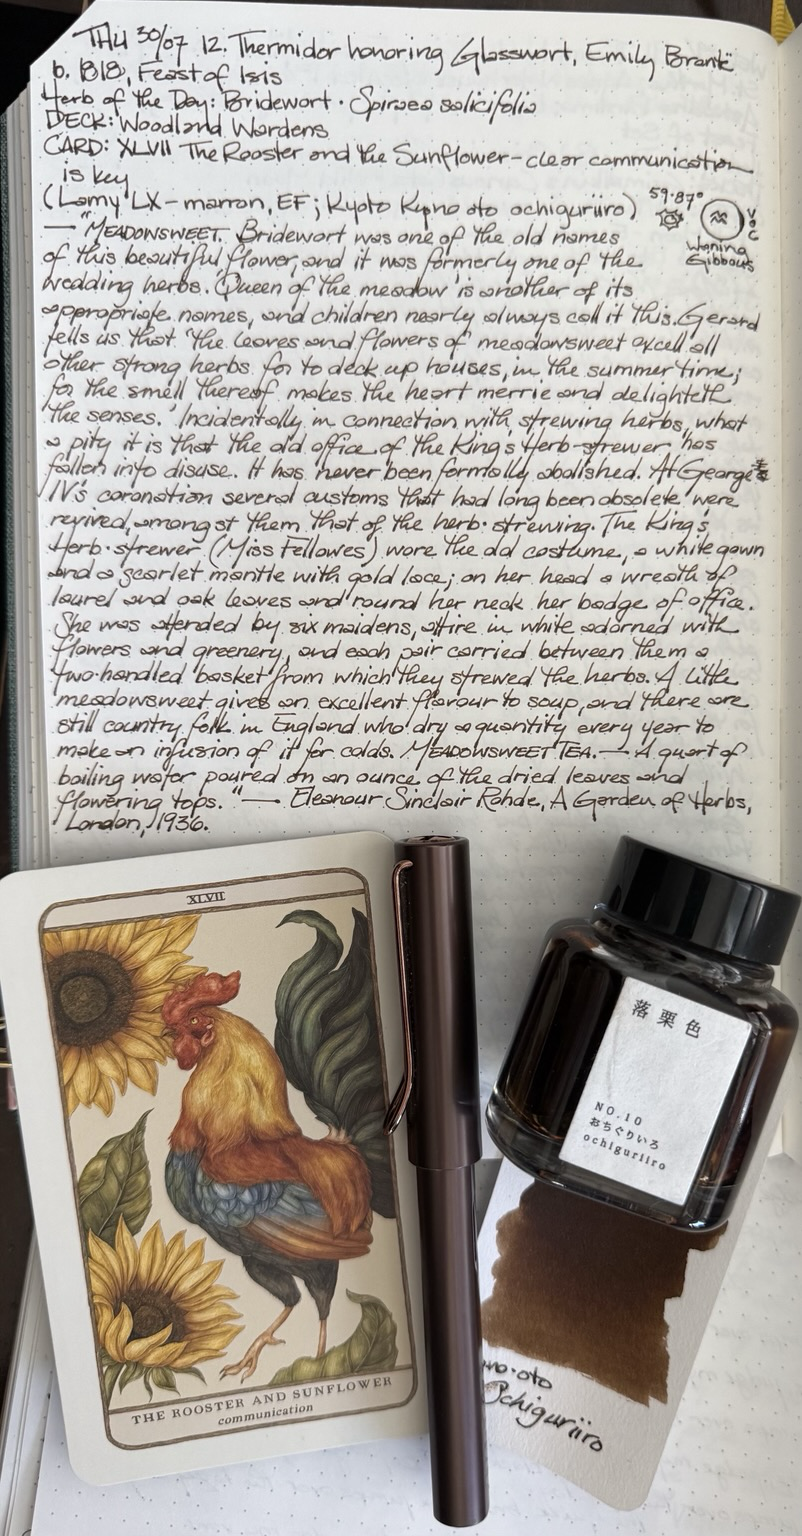 THU 30/07 12. Thermidor honoring Glasswort, Emily Brontë
b. 1818, Feast of Isis
Herb of the Day: Bridewort · Spiraea salicifolia
DECK: Woodland Wardens
CARD: XLVII The Rooster and the Sunflower - clear communication
is key
(Lamy LX - marron, EF; Kyoto Kyno oto ochiguriiro)
59·87°
VOC
Waning
Gibbous
— "MEADOWSWEET. Bridewort was one of the old names
of this beautiful flower, and it was formerly one of the
wedding herbs. 'Queen of the meadow' is another of its
appropriate names, and children nearly always call it this. Gerard
tells us that 'the leaves and flowers of meadowsweet excell all
other strong herbs for to deck up houses, in the summer time;
for the smell thereof makes the heart merrie and delighteth
the senses.' Incidentally, in connection with strewing herbs, what
a pity it is that the old office of the King's Herb-strewer has
fallen into disuse. It has never been formally abolished. At George
IV's coronation several customs that had long been obsolete were
revived, amongst them that of the herb-strewing. The King's
Herb-strewer (Miss Fellowes) wore the old costume, a white gown
and a scarlet mantle with gold lace; on her head a wreath of
laurel and oak leaves and round her neck her badge of office.
She was attended by six maidens, attire in white adorned with
flowers and greenery, and each pair carried between them a
two-handled basket from which they strewed the herbs. A little
meadowsweet gives an excellent flavour to soup, and there are
still country folk in England who dry a quantity every year to
make an infusion of it for colds. MEADOWSWEET TEA. — A quart of
boiling water poured on an ounce of the dried leaves and
flowering tops." — Eleanour Sinclair Rohde, A Garden of Herbs,
London, 1936.
XLVII
THE ROOSTER AND SUNFLOWER
communication
落栗色
NO.10
おちぐりいろ
ochiguriiro
oto
Ochiguriiro